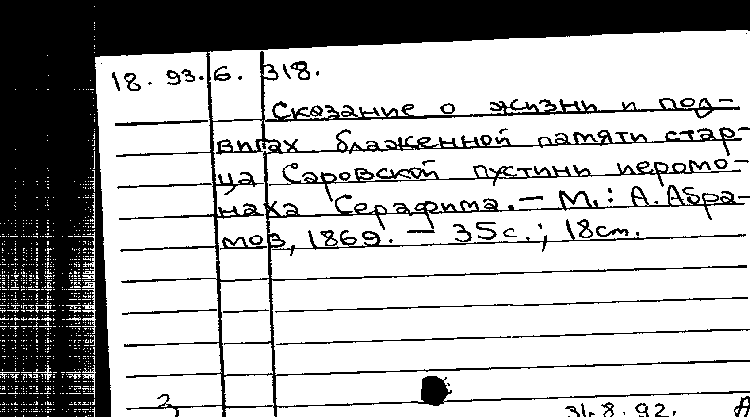 18.93.6.318.
Сказание о жизни и под-
вигах блаженной памяти стар-
ца Саровской пустини иеромо-
наха Серафима. — М.: А. Абра-
мов, 1869. — 35с.; 18см.
3
31.8.92.